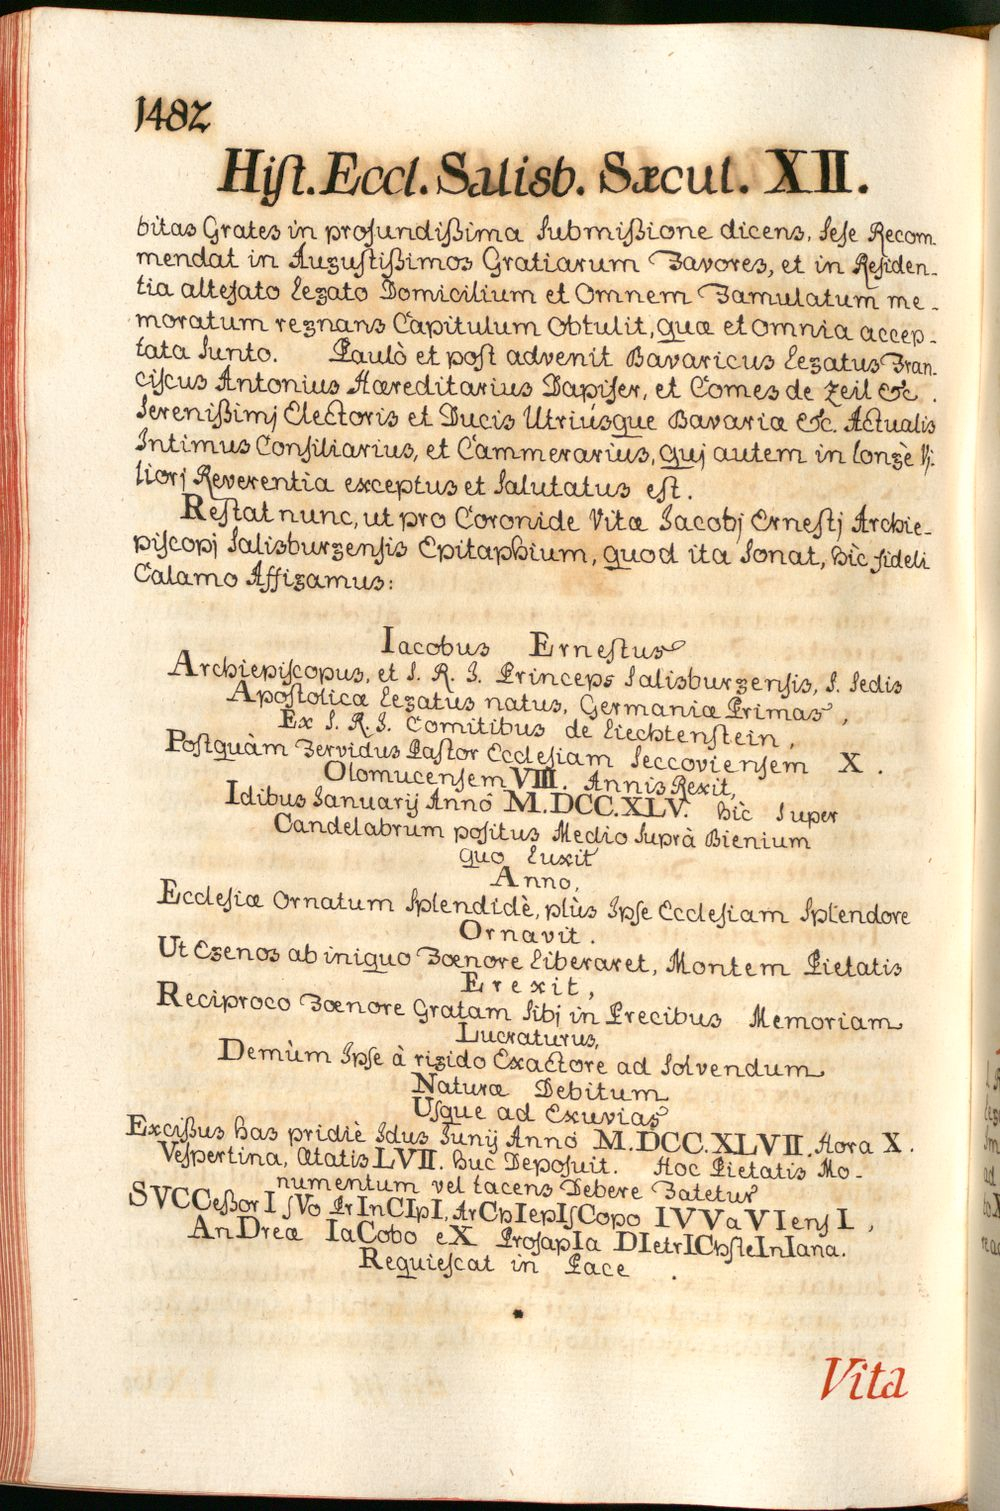 1482
Hist. Eccl. Salisb. Sæcul. XII.
bitas Grates in profundißima Submißione dicens, Sese Recom-
mendat in Augustißimos Gratiarum Favores, et in Residen-
tia altefato Legato Domicilium et Omnem Famulatum me-
moratum regnans Capitulum Obtulit, quæ et omnia accep-
tata Sunto. Paulò et post advenit Bavaricus Legatus Fran-
ciscus Antonius Hæreditarius Dapifer, et Comes de Zeil &c.
Serenißimj Electoris et Ducis Utriúsque Bavariæ &c. Actualis
Intimus Consiliarius, et Cammerarius, quj autem in longè Vi-
liorj Reverentia exceptus et Salutatus est.
Restat nunc, ut pro Coronide Vitæ Jacobj Ernestj Archie-
piscopj Salisburgensis Epitaphium, quod ita Sonat, hìc fideli
Calamo Affigamus:
Iacobus Ernestus
Archiepiscopus, et S. R. J. Princeps Salisburgensis, S. Sedis
Apostolicæ Legatus natus, Germaniæ Primas,
Ex S. R. J. Comitibus de Liechtenstein,
Postquàm Fervidus Pastor Ecclesiam Seccoviensem X.
Olomucensem VIII. Annis Rexit,
Idibus Januarij Annô M.DCC.XLV. hìc Super
Candelabrum positus Medio Suprà Bienium
quo Luxit
Anno,
Ecclesiæ Ornatum Splendidè, plùs Ipse Ecclesiam Splendore
Ornavit.
Ut Egenos ab iniquo Fœnore Liberaret, Montem Pietatis
Erexit,
Reciproco Fœnore Gratam Sibj in Precibus Memoriam
Lucraturus,
Demùm Ipse à rigido Exactore ad Solvendum
Naturæ Debitum
Usque ad Exuvias
Excißus has pridiè Idus Junij Annô M.DCC.XLVII. Hora X.
Vespertina, Ætatis LVII. huc Deposuit. Hoc Pietatis Mo-
numentum vel tacens Debere Fatetur
SVCCeßorI sVo PrInCIpI, ArChIepIsCopo IVVaVIensI,
AnDreæ IaCobo eX ProsapIa DIetrIChsteInIana.
Requiescat in Pace.
Vita